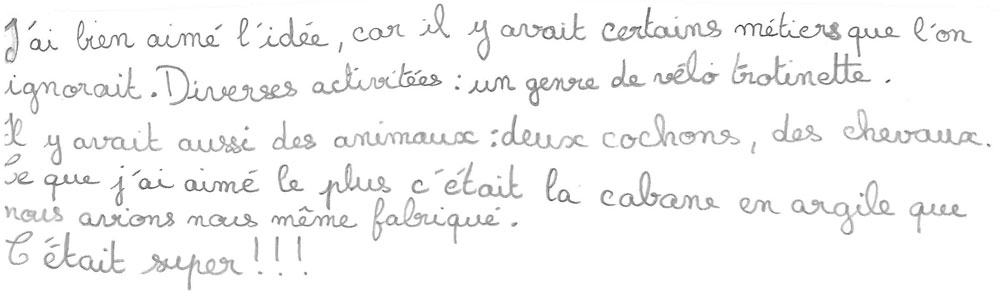 J'ai bien aimé l'idée, car il y avait certains métiers que l'on
ignorait. Diverses activitées : un genre de vélo trotinette.
Il y avait aussi des animaux : deux cochons, des chevaux.
Ce que j'ai aimé le plus c'était la cabane en argile que
nous avions nous même fabriqué.
C'était super!!!